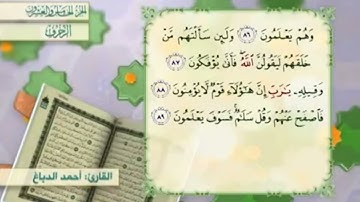 الجزء الخامس والعشرون
الزخرف
وَهُمْ يَعْلَمُونَ ٨٦ وَلَئِن سَأَلْتَهُم مَّنْ
خَلَقَهُمْ لَيَقُولُنَّ اللَّهُ ۖ فَأَنَّىٰ يُؤْفَكُونَ ٨٧
وَقِيلِهِ يَٰرَبِّ إِنَّ هَٰؤُلَاءِ قَوْمٌ لَّا يُؤْمِنُونَ ٨٨
فَاصْفَحْ عَنْهُمْ وَقُلْ سَلَٰمٌ ۚ فَسَوْفَ يَعْلَمُونَ ٨٩
القارئ: أحمد الدباغ